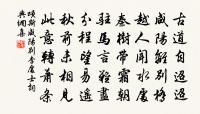 古道自迢迢
咸陽離別橋
越人聞水處
秦樹帶霜朝
駐馬言難盡
分程望易遙
秋前未相見
此意轉蕭條
項斯咸陽別李處士詞
典網集